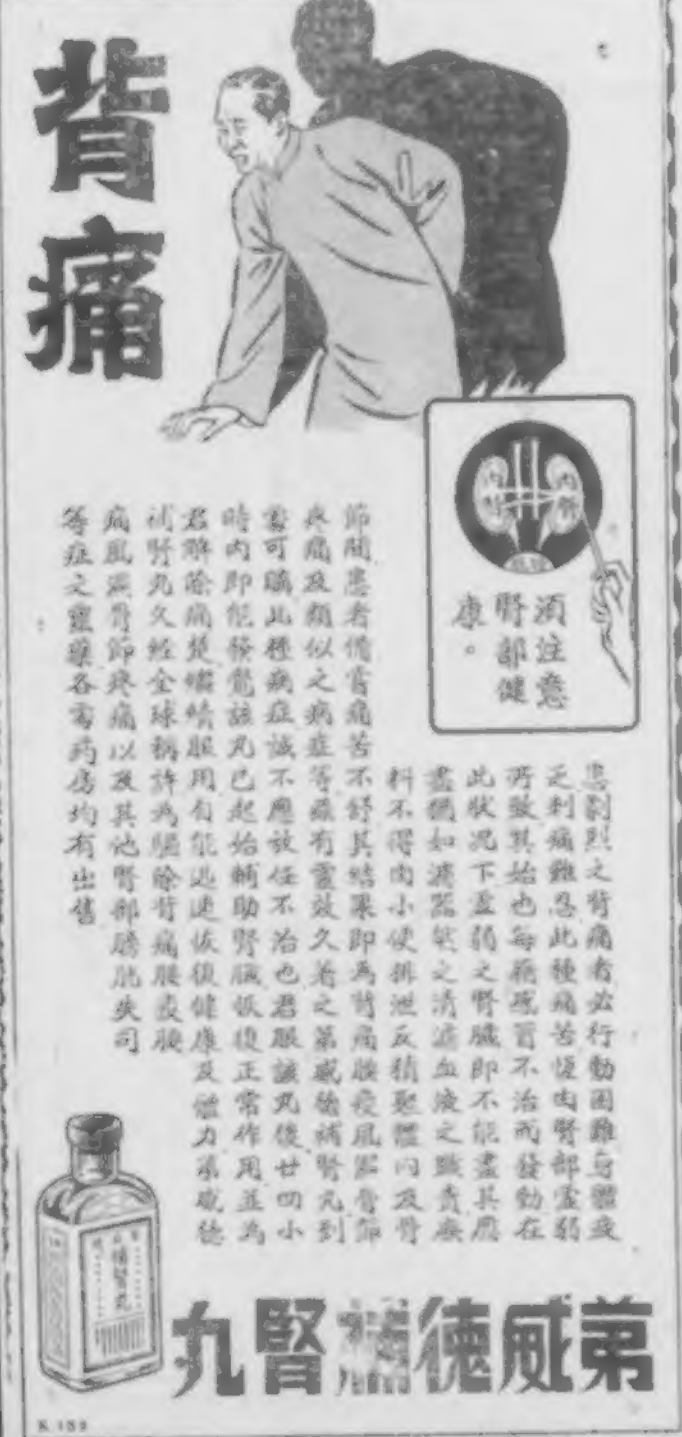 背痛
內腎
內腎
須注意
腎部健
康。
患劇烈之背痛者必行動困難身體疲
乏刺痛難忍此種痛苦恆由腎部虛弱
所致其始也每藉感冒不治而發動在
此狀況下虛弱之腎臟即不能盡其應
盡猶如濾器然之清濾血液之職責廢
料不得由小便排泄反積聚體內及骨
節間患者備嘗痛苦不舒其結果即為背痛腰痠風濕骨節
疼痛及類似之病症等藥有靈效久著之第威德補腎丸到
處可購此種病症誠不應放任不治也君服該丸後廿四小
時內即能發覺該丸已起始輔助腎臟恢復正常作用並為
君解除痛楚繼續服用自能迅速恢復健康及體力第威德
補腎丸久經全球稱許為驅除背痛腰痠腰
痛風濕骨節疼痛以及其他腎部膀胱失司
等症之靈藥各電药房均有出售
補腎丸
第威德補腎丸
K 152